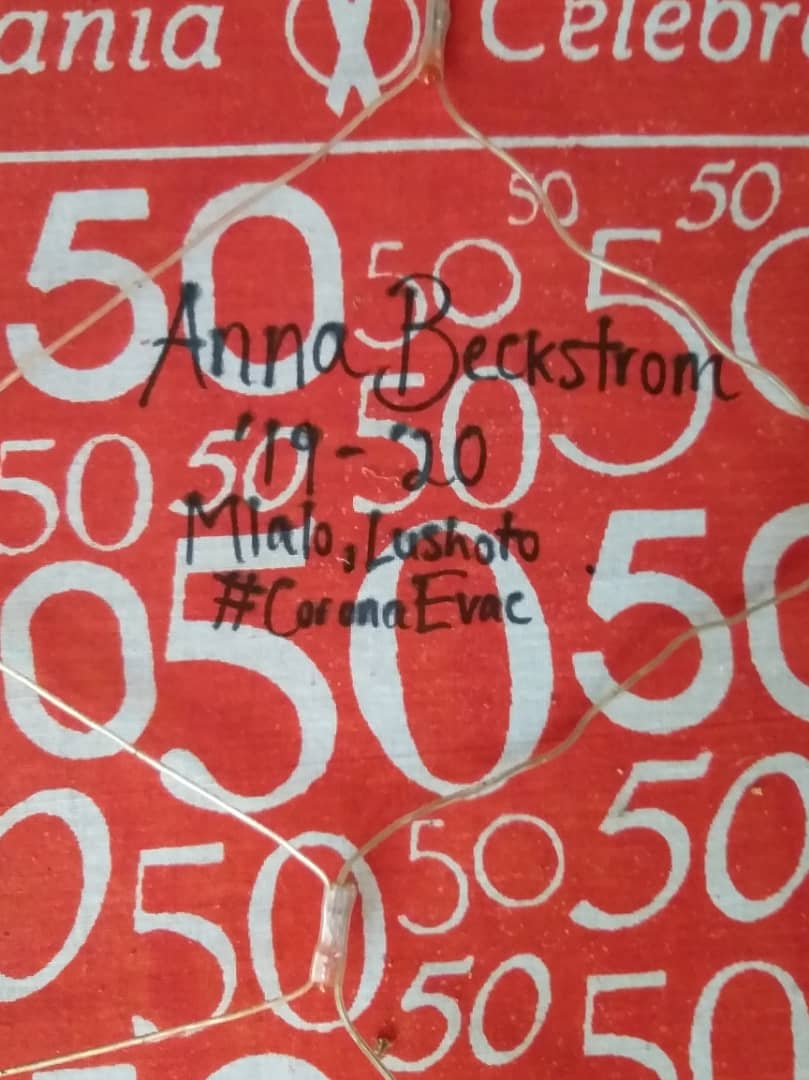 ania Celebr
50 50
50 50 5
Anna Beckstrom
50 50 50
'19-'20
Mlalo, Lushoto
#CoronaEvac
0 50 50
50 50
0 50 50
50 50